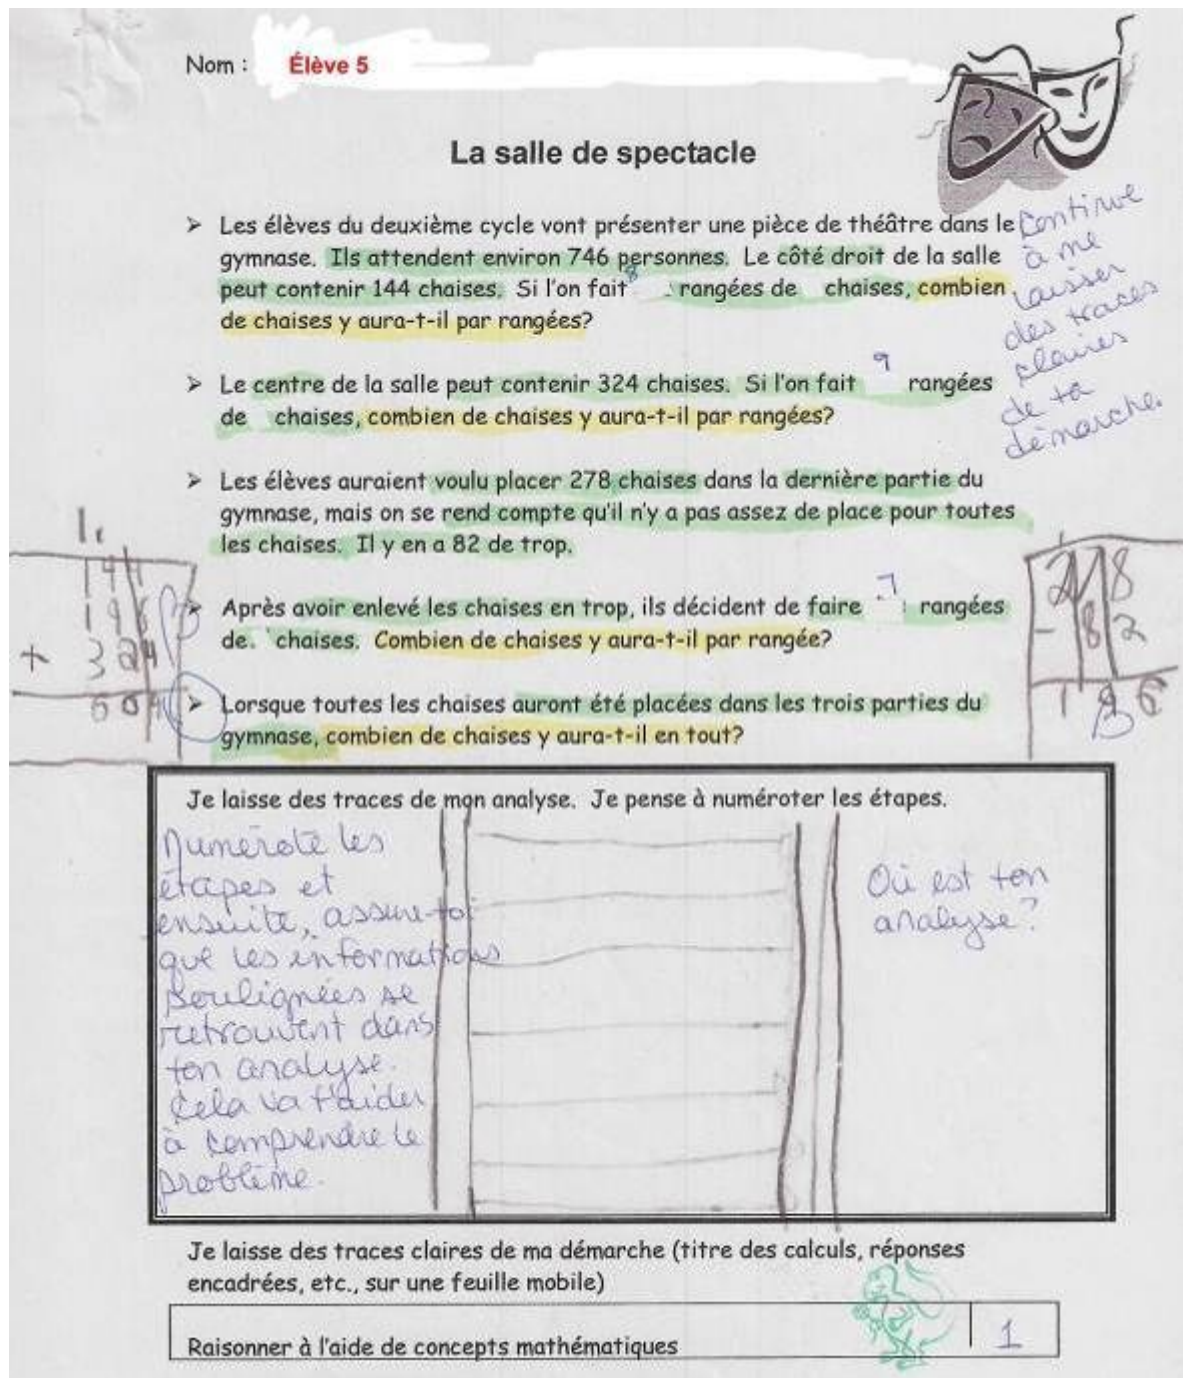 Nom : Élève 5
La salle de spectacle
➤ Les élèves du deuxième cycle vont présenter une pièce de théâtre dans le
gymnase. Ils attendent environ 746 personnes. Le côté droit de la salle
peut contenir 144 chaises. Si l'on fait 8 rangées de chaises, combien
de chaises y aura-t-il par rangées?
Continue
à me
laisser
des traces
claires
de ta
démarche.
➤ Le centre de la salle peut contenir 324 chaises. Si l'on fait 9 rangées
de chaises, combien de chaises y aura-t-il par rangées?
➤ Les élèves auraient voulu placer 278 chaises dans la dernière partie du
gymnase, mais on se rend compte qu'il n'y a pas assez de place pour toutes
les chaises. Il y en a 82 de trop.
➤ Après avoir enlevé les chaises en trop, ils décident de faire 7 rangées
de chaises. Combien de chaises y aura-t-il par rangée?
➤ Lorsque toutes les chaises auront été placées dans les trois parties du
gymnase, combien de chaises y aura-t-il en tout?
144
196
+ 324
- 82
196
Je laisse des traces de mon analyse. Je pense à numéroter les étapes.
Numérote les
étapes et
ensuite, assure-toi
que les informations
soulignées se
retrouvent dans
ton analyse.
Cela va t'aider
à comprendre le
problème.
Où est ton
analyse?
Je laisse des traces claires de ma démarche (titre des calculs, réponses
encadrées, etc., sur une feuille mobile)
Raisonner à l'aide de concepts mathématiques 1